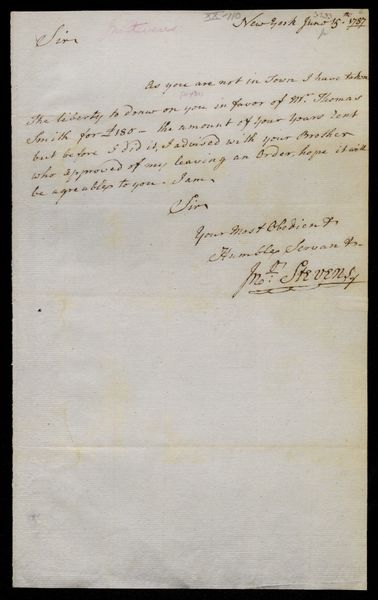 XX-110
New York June 15th 1787
Sir
As you are not in Town I have taken
the liberty to draw on you in favor of Mr. Thomas
Smith for £180 - the amount of your Years Rent
but before I did it, I advised with your Brother
who approved of my leaving an Order, hope it will
be agreeable to you. I am
Sir
Your Most Obedient
Humble Servant
Jno. Stevens